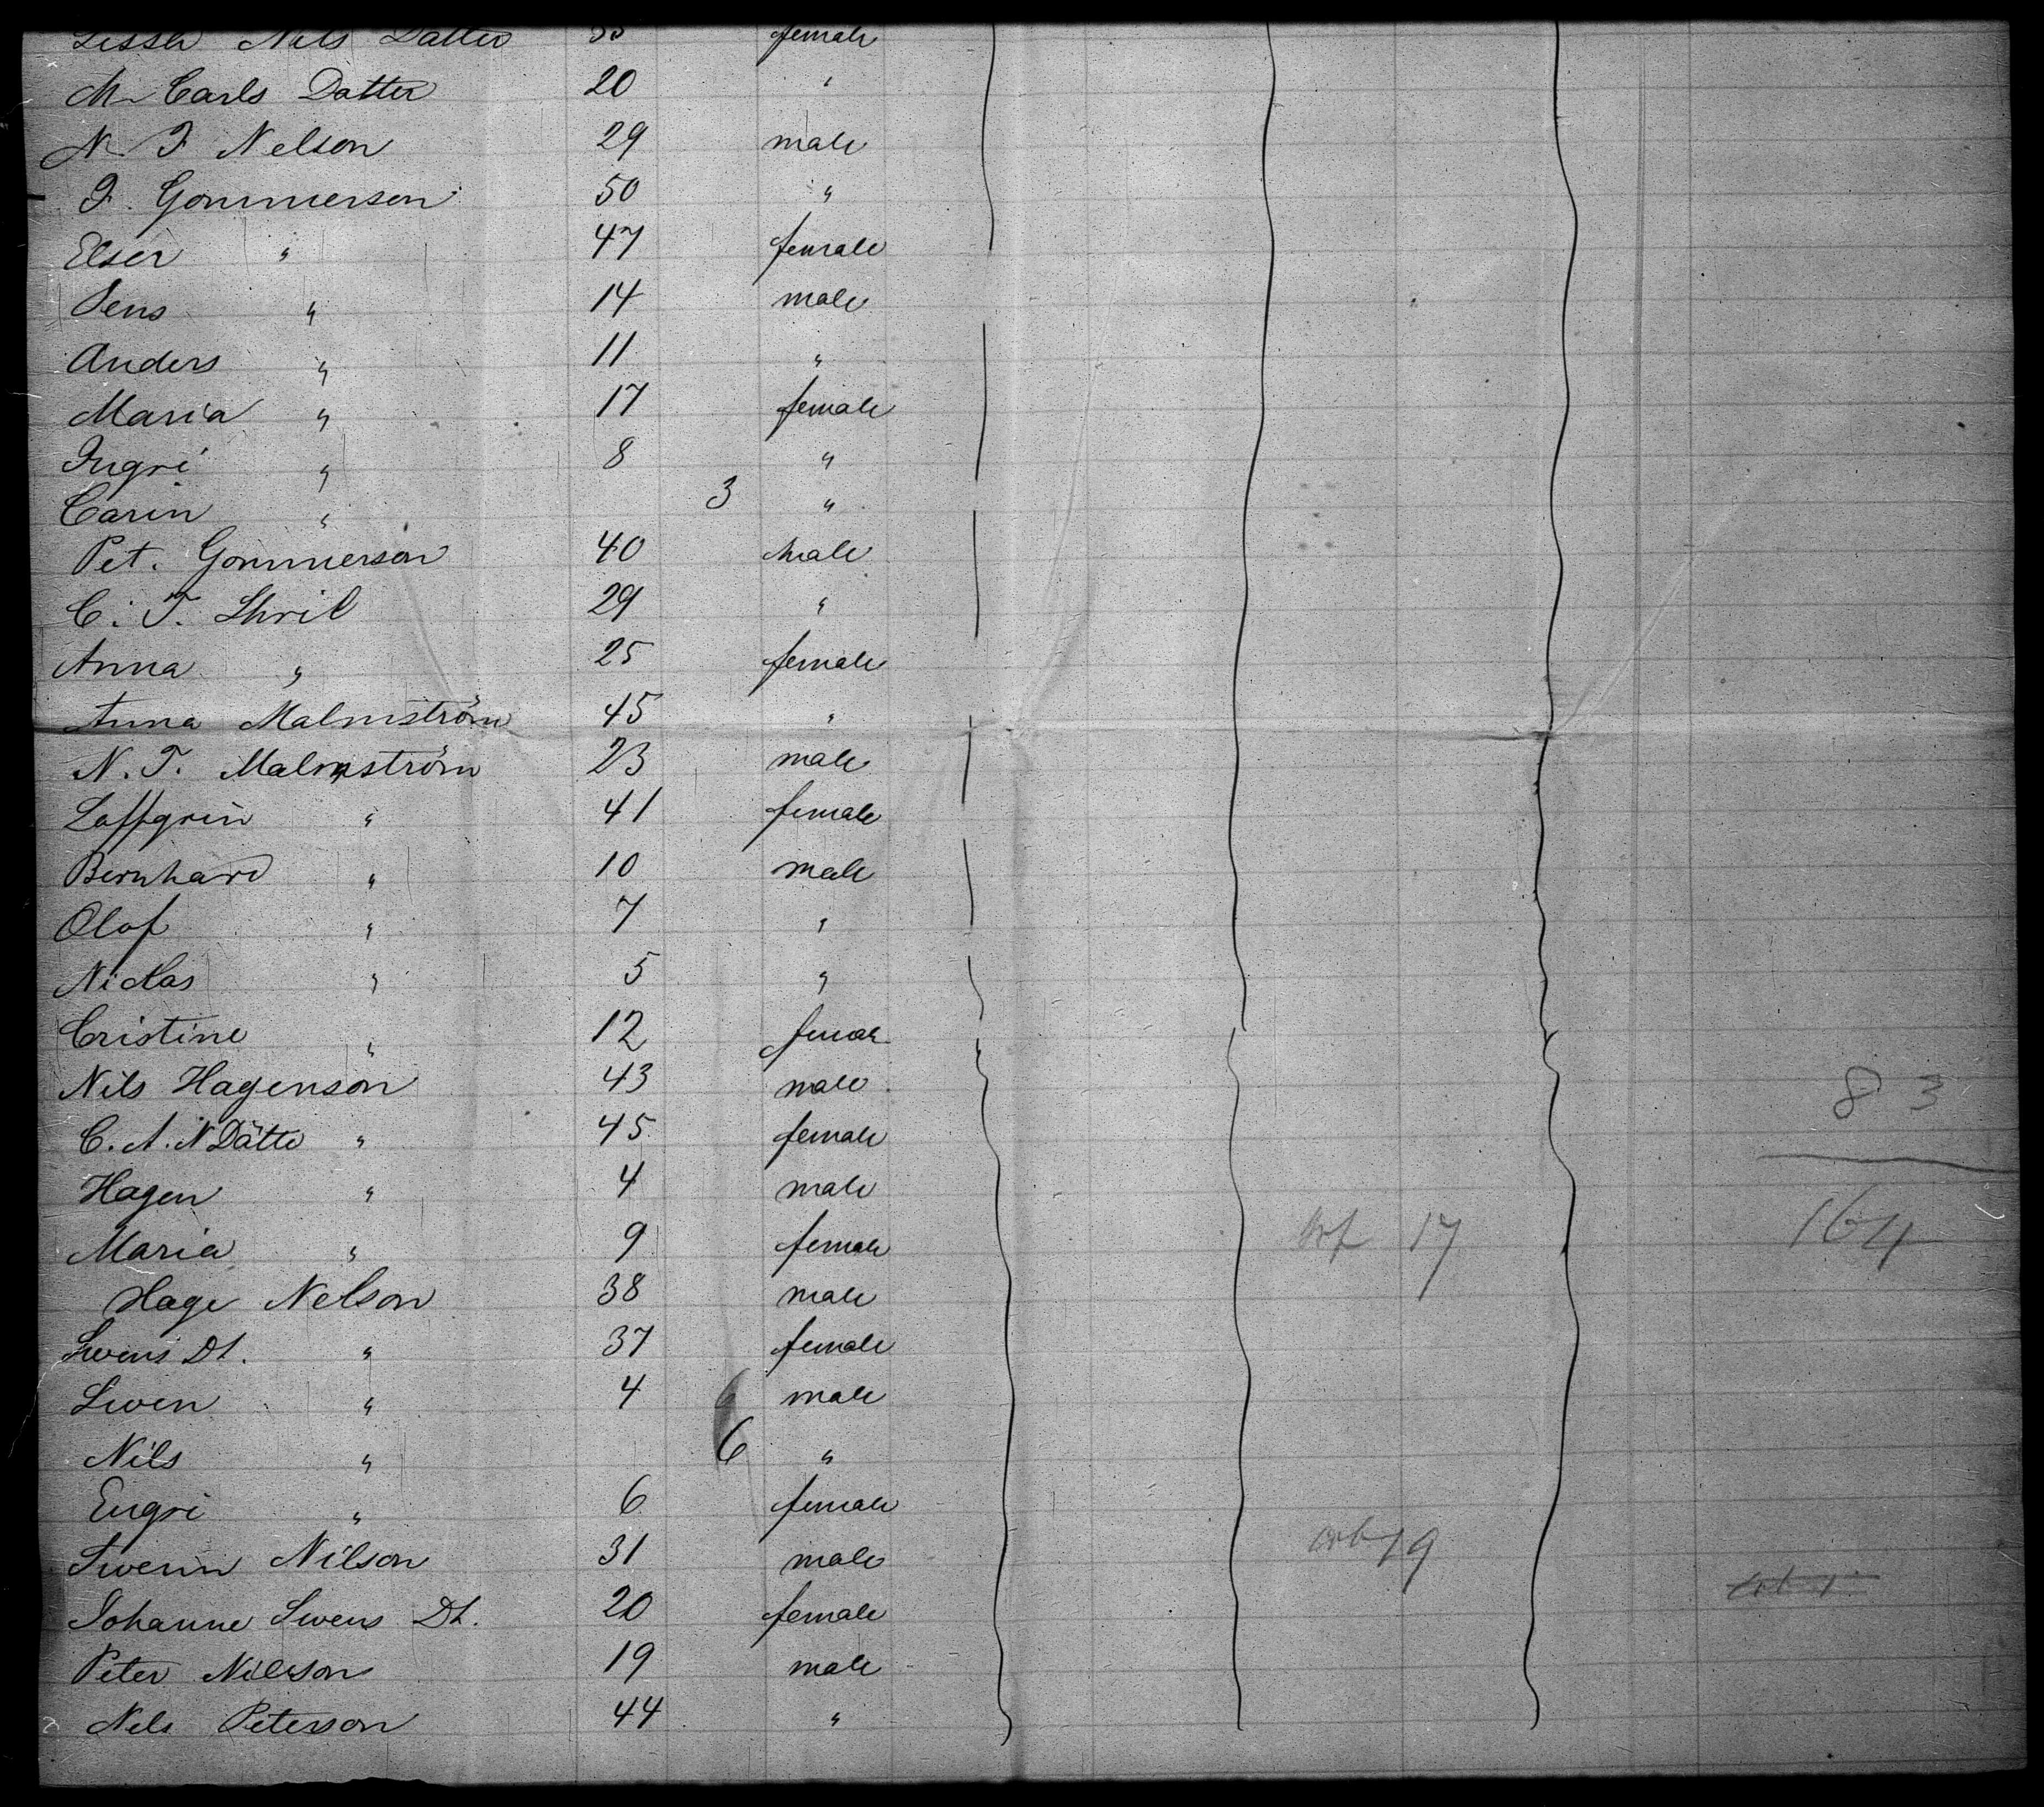 Nils Datter female
M Carls Datter 20 "
N. J Nelson 29 male
J. Gommerson 50 "
Elser " 47 female
Jens " 14 male
Anders " 11 "
Maria " 17 female
Ingri " 8 "
Carin " 3 "
Pet. Gommerson 40 male
C. T. Shril 29 "
Anna " 25 female
Anna Malmström 45 "
N. T. Malmström 23 male
Loffgrin " 41 female
Bernhard " 10 male
Olof " 7 "
Nicklas " 5 "
Cristine " 12 female
Nils Hagenson 43 male
83
C. A. N Dätte " 45 female
Hagen " 4 male
Maria " 9 female
17 164
Hage Nelson 38 male
Swens Dt. " 37 female
Swen " 4 male
Nils " 6 "
Engri " 6 female
Swenn Nilson 31 male
19
Johanne Swens Dt. 20 female
Peter Nilsson 19 male
Nels Peterson 44 "